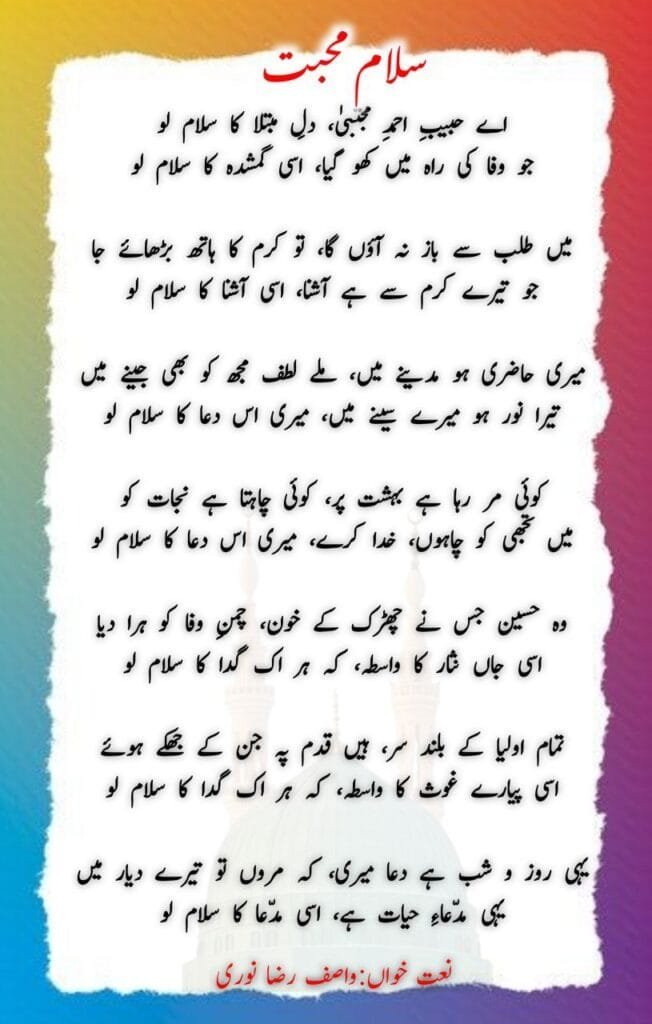 سلام محبت
اے حبیبِ احمدِ مجتبیٰ، دلِ مبتلا کا سلام لو
جو وفا کی راہ میں کھو گیا، اسی گمشدہ کا سلام لو
میں طلب سے باز نہ آؤں گا، تو کرم کا ہاتھ بڑھائے جا
جو تیرے کرم سے ہے آشنا، اسی آشنا کا سلام لو
میری حاضری ہو مدینے میں، ملے لطف مجھ کو بھی جینے میں
تیرا نور ہو میرے سینے میں، میری اس دعا کا سلام لو
کوئی مر رہا ہے بہشت پر، کوئی چاہتا ہے نجات کو
میں تجھی کو چاہوں، خدا کرے، میری اس دعا کا سلام لو
وہ حسین جس نے چھڑک کے خون، چمنِ وفا کو ہرا دیا
اسی جاں نثار کا واسطہ، کہ ہر اک گدا کا سلام لو
تمام اولیا کے بلند سر، ہیں قدم پہ جن کے جھکے ہوئے
اسی پیارے غوث کا واسطہ، کہ ہر اک گدا کا سلام لو
یہی روز و شب ہے دعا میری، کہ مروں تو تیرے دیار میں
یہی مدّعاءِ حیات ہے، اسی مدّعا کا سلام لو
نعت خواں:واصف رضا نوری